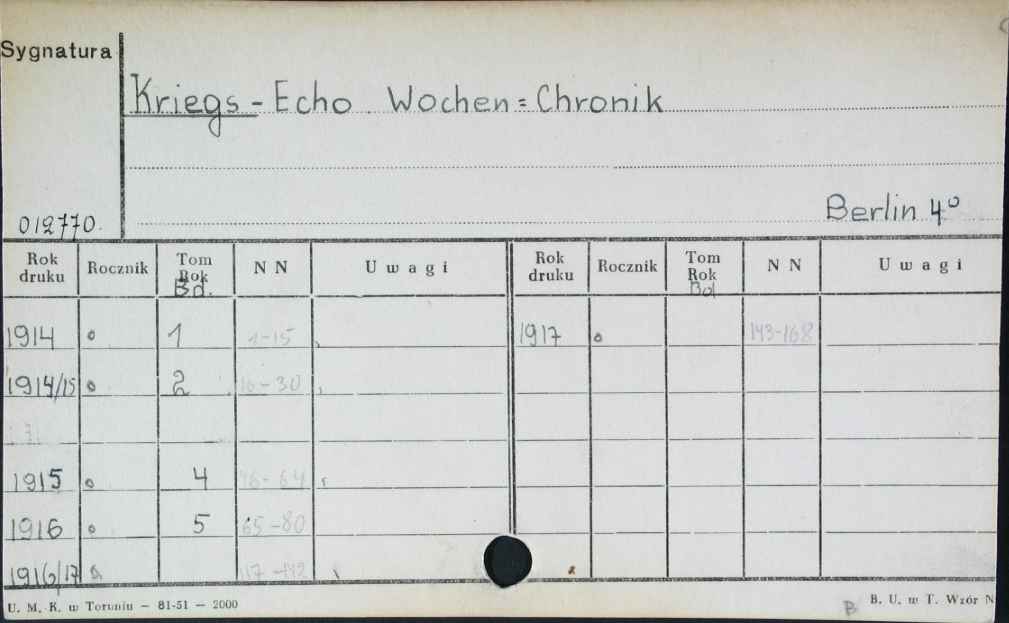 Sygnatura
Kriegs - Echo. Wochen = Chronik
012770.
Berlin 4°
Rok druku Rocznik Tom Rok Bd. N N Uwagi Rok druku Rocznik Tom Rok Bd N N Uwagi
1914 o 1 1-15 1917 o 143-168
1914/15 o 2 16-30
1915 o 4 46-64
1916 o 5 65-80
1916/17
U. M. K. w Toruniu — 81-51 — 2000
B
B. U. w T. Wzór N